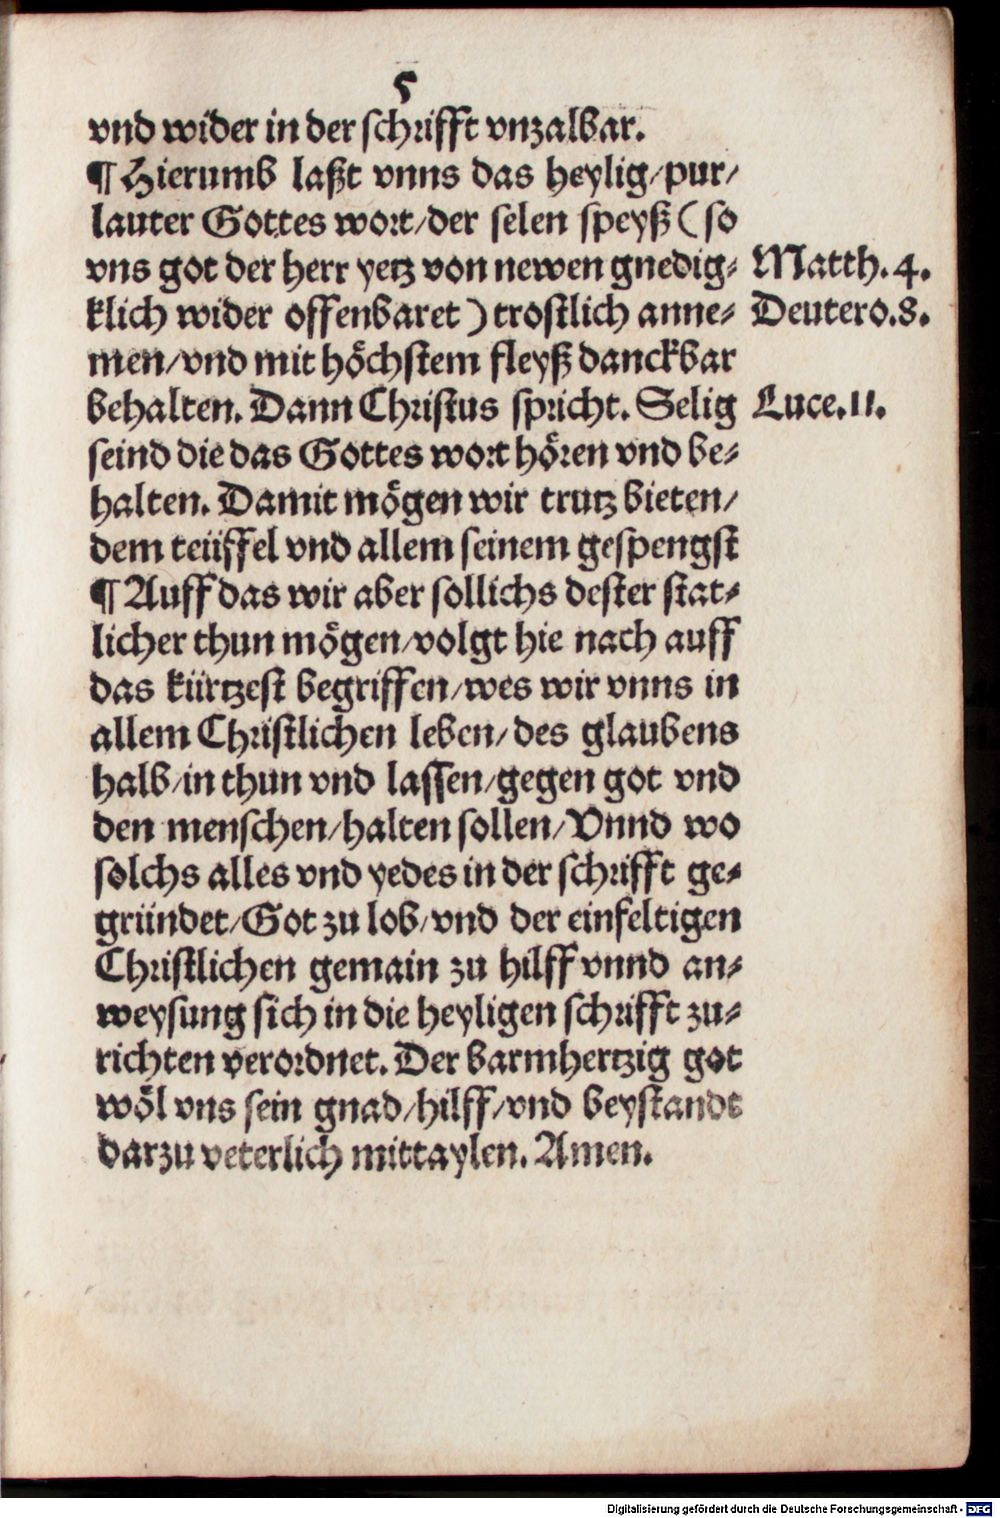 5
vnd wider in der schrifft vnzalbar.
¶ Hierumb laßt vnns das heylig/pur/
lauter Gottes wort/der selen speyß (so
vns got der herr yetz von newen gnedig⸗ Matth. 4.
klich wider offenbaret) trostlich anne⸗ Deutero. 8.
men/vnd mit höchstem fleyß danckbar
behalten. Dann Christus spricht. Selig Luce. 11.
seind die das Gottes wort hören vnd be⸗
halten. Damit mögen wir trutz bieten/
dem teüffel vnd allem seinem gespengst
¶ Auff das wir aber sollichs dester stat⸗
licher thun mögen/volgt hie nach auff
das kürtzest begriffen/wes wir vnns in
allem Christlichen leben/des glaubens
halb/in thun vnd lassen/gegen got vnd
den menschen/halten sollen/Vnnd wo
solchs alles vnd yedes in der schrifft ge⸗
gründet/Got zu lob/vnd der einfeltigen
Christlichen gemain zu hilff vnnd an⸗
weysung sich in die heyligen schrifft zu⸗
richten verordnet. Der barmhertzig got
wöl vns sein gnad/hilff/vnd beystandt
darzu veterlich mittaylen. Amen.
Digitalisierung gefördert durch die Deutsche Forschungsgemeinschaft - DFG